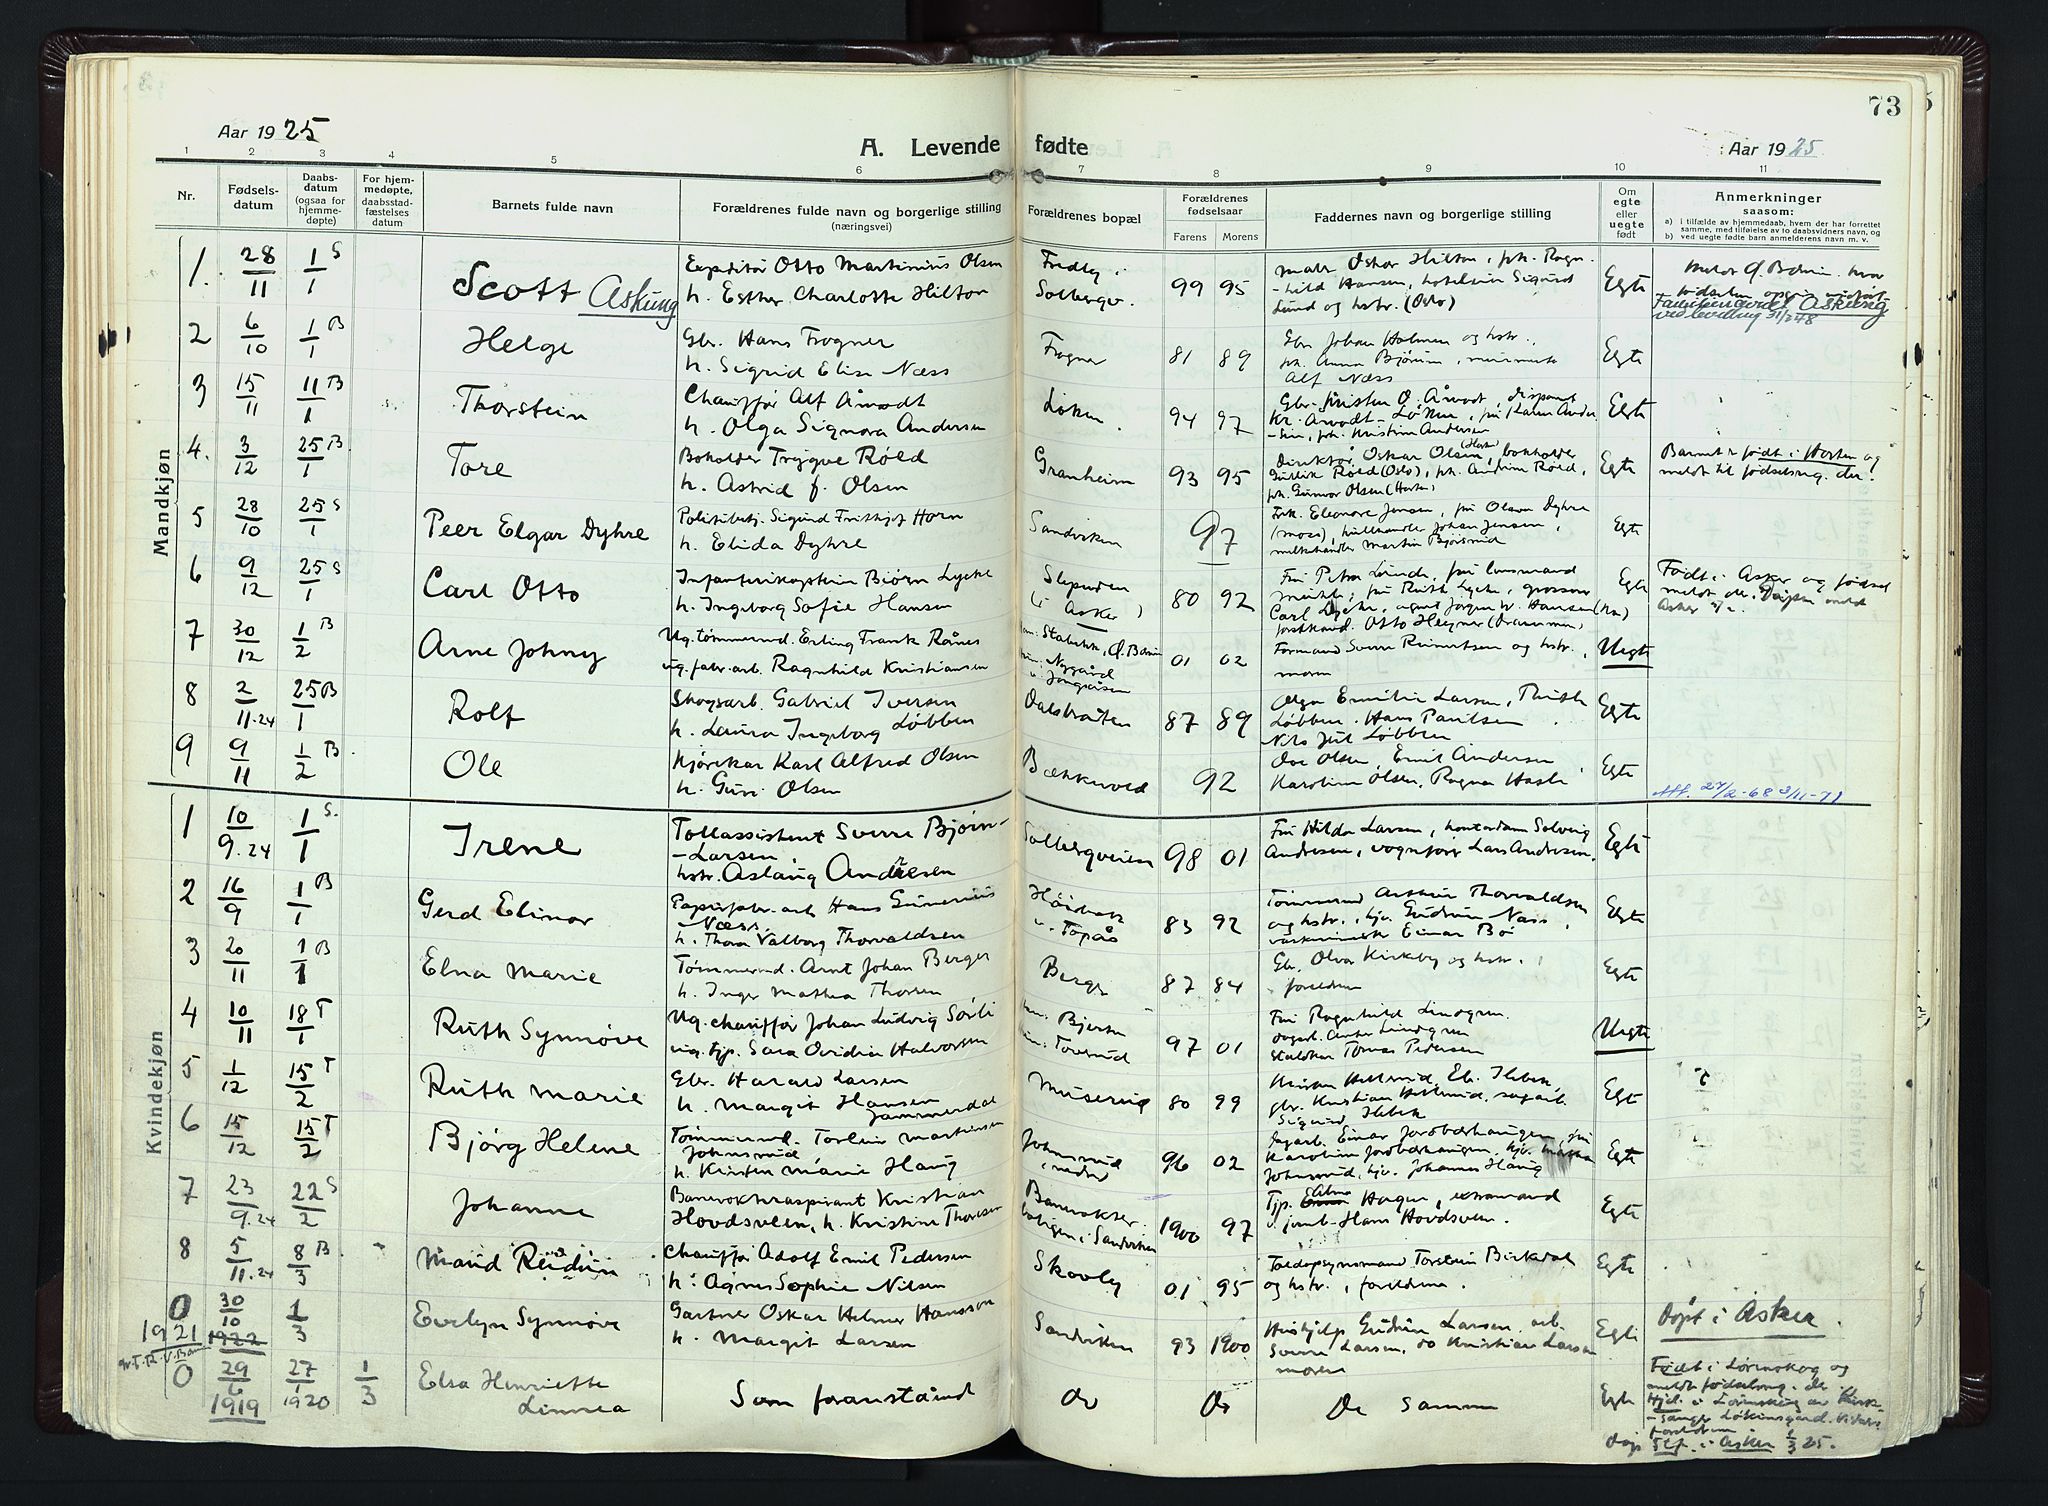 73
Aar 1925
A. Levende fødte
Aar 1925
1 2 3 4 5 6 7 8 9 10 11
Nr.
Fødsels-datum
Daabs-datum (ogsaa for hjemme-døpte)
For hjem-medøpte, daabsstad-fæstelses datum
Barnets fulde navn
Forældrenes fulde navn og borgerlige stilling
(næringsvei)
Forældrenes bopæl
Forældrenes fødselsaar
Farens Morens
Faddernes navn og borgerlige stilling
Om egte eller uegte født
Anmerkninger
saasom:
a) i tilfælde av hjemmedaab, hvem der har forrettet samme, med tilføielse av to daabsvidners navn, og
b) ved uegte fødte barn anmelderens navn m. v.
Mandkjøn
1. 28/11 1/1 S Scott Askung
Expeditør Otto Martinius Olsen
h. Esther Charlotte Hilton
Solbergv. 99 95
Lund og hstr. (Oslo)
Egte
Familienavnet Askung
ved bevilling
2 6/10 1/1 B Helge
Gbr. Hans Frogner
h. Sigrid Elise Næss
Frogner 81 89
Gbr. Johan Holmen og hstr.,
Alf Næss
Egte
3 15/11 11/1 B Thorstein
Chauffør Alf Åmodt
h. Olga Signora Andersen
Løken 94 97
Egte
4. 3/12 25/1 B Tore
Bokholder Trygve Røed
h. Astrid f. Olsen
Granheim 93 95
Direktør Oskar Olsen (Horten), bokholder
Gullik Røed (Oslo), frk. Andrine Røed,
frk. Gunvor Olsen (Horten)
Egte
Barnet er født i Horten og
meldt til fødselsreg. der.
5 28/10 25/1 S Peer Elgar Dyhre
Politibetj. Sigurd Frithjof Horn
h. Elida Dyhre
Sandviken 97
Frk. Eleonore Jensen, fru Olson Dyhre
(Moss), hullhandler Johan Jensen,
melkehandler Martin
Egte
6 9/12 25/1 S Carl Otto
Infanterikaptein Bjørn Lycke
h. Ingeborg Sofie Hansen
Slependen
(i Asker)
80 92
forstkand. Otto Heyner (Drammen)
Egte
Født i Asker og fødsel
meldt der.
7 30/12 1/2 B Arne Johny
Ug. tømmermd. Erling Frank Rånes
ug. fabr. arb. Ragnhild Kristiansen
Stabekk, Ø. Bærum
Nygård
01 02
Formand Sverre Reinertsen og hstr.,
moren
Uegte
8 2/11.24 25/1 B Rolf
Skogsarb. Gabriel Iversen
h. Laura Ingeborg Løbben
Dalsbråten 87 89
Olga Emilie Larsen, Thrine
Løbben, Hans Paulsen
Nils Juel Løbben
Egte
9 9/11 1/2 B Ole
Kjørekar Karl Alfred Olsen
h. Guri Olsen
Bækkevold 92
Ove Olsen, Emil Andersen
Karoline Olsen, Ragna Hasle
Egte
Att. 27/2-68 3/11-71
Kvindekjøn
1 10/9.24 1/1 S. Irene
Tollassistent Sverre Bjørn-
-Larsen,
hstr. Aslaug Andresen
Solbergveien 98 01
Fru Hilda Larsen, kontordam Solveig
Andresen, vognfører Lars Andresen.
Egte
2 16/9 1/1 B Gerd Elinor
Papirfabr. arb. Hans Gunerius
Næss,
h. Thora Valborg Thorvaldsen
83 92
Tømmermd Arthur Thorvaldsen
og hstr., hjv. Gudrun Næss,
Einar Bø
Egte
3 20/11 1/1 B Elna Marie
Tømmermd. Arnt Johan Berger
h. Inger Mathea Thorsen
Berger 87 84
Gbr. Olvar Kirkeby og hstr.,
foreldrene
Egte
4 10/11 18/1 T Ruth Synnøve
Ug. chauffør Johan Ludvig Sørli
ug. tjp. Sara Ovidia Halvorsen
Bjerke
Toverud
97 01
Fru Ragnhild Lindgren.
dagarb. Anton Lindgren
staldkar Tomas Pedersen
Uegte
5 1/12 15/2 T Ruth Marie
Gbr. Harald Larsen
h. Margit Hansen
Jammerdal
Muserud 80 99
Sigurd Ilebek
Egte
6 15/12 15/2 T Bjørg Helene
Tømmermd. Torleiv Martinsen
Johnsrud
h. Kirsten Marie Haug
Johnsrud
nedre
96 02
Sagarb. Einar Jordbærhaugen, fru
Karoline Jordbærhaugen, hjv. Mattea
Johnsrud, hjv. Johannes Haug
Egte
7 23/9.24 22/2 S Johanne
Banevokteraspirant Kristian
Hovdsveen, h. Kristine Thoresen
Banevokter-
boligen i Sandviken
1900 97
Tjp. Alma Hagen, extramand
v. jernb. Hans Hovdsveen.
Egte
8 5/11.24 8/3 B Maud Reidun
Chauffør Adolf Emil Pedersen
h. Agnes Sophie Nilsen
Skovly 01 95
Toldopsynsmand Torstein Birkedal
og hstr., foreldrene.
Egte
0 30/10 1921 1922 1/3 Evelyn Synnøve
Gartner Oskar Helmer Hansson
h. Margit Larsen
Sandviken 93 1900
Hushjelp Gudrun Larsen, arb.
Sverre Larsen, do Kristian Larsen
moren
Egte
døpt i Asker.
0 29/6 1919 27/1 1920 1/3 Elsa Henriette
Linnea
Som foranstående
do do De samme
Egte
Født i Lørenskog og
meldt fødselsreg. der.
Hjd. i Lørenskog av kirke-
-sanger Løkensgard. Vidner:
foreldrene
Dåp stf. i Asker 1/3 25.